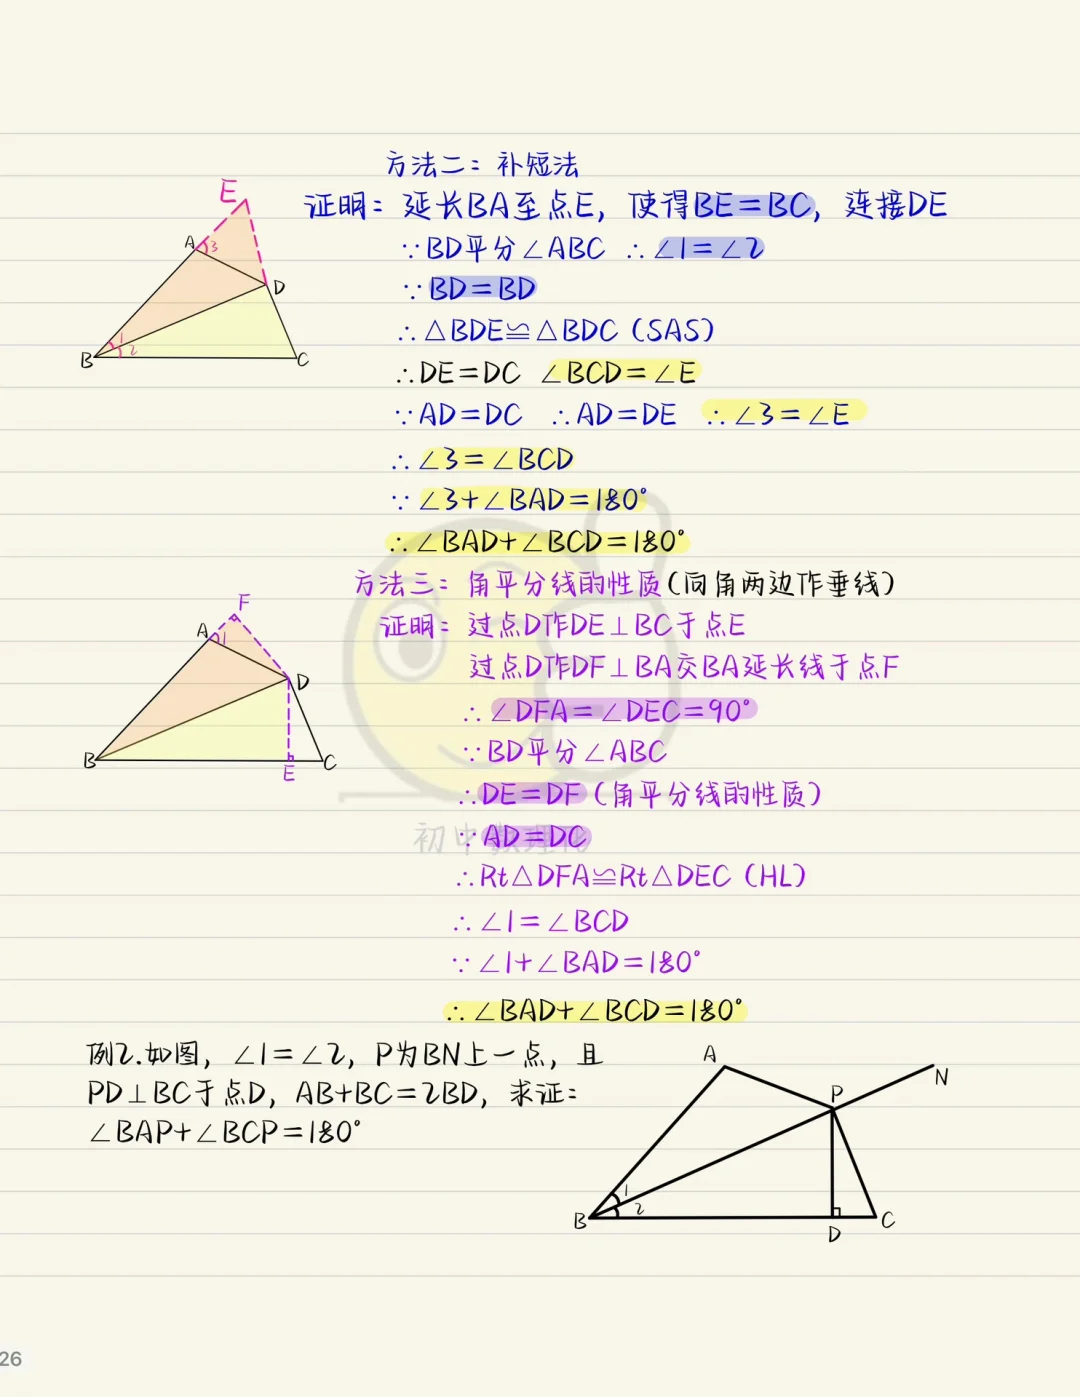 方法二：补短法
证明：延长BA至点E，使得BE=BC，连接DE
∵BD平分∠ABC ∴∠1=∠2
∵BD=BD
∴△BDE≌△BDC（SAS）
∴DE=DC ∠BCD=∠E
∵AD=DC ∴AD=DE ∴∠3=∠E
∴∠3=∠BCD
∵∠3+∠BAD=180°
∴∠BAD+∠BCD=180°
E
A
3
D
B
1
2
C
方法三：角平分线的性质(向角两边作垂线)
证明：过点D作DE⊥BC于点E
过点D作DF⊥BA交BA延长线于点F
∴∠DFA=∠DEC=90°
∵BD平分∠ABC
∴DE=DF（角平分线的性质）
∵AD=DC
∴Rt△DFA≌Rt△DEC（HL）
∴∠1=∠BCD
∵∠1+∠BAD=180°
∴∠BAD+∠BCD=180°
F
A
1
D
B
E
C
初中数理化
例2.如图，∠1=∠2，P为BN上一点，且
PD⊥BC于点D，AB+BC=2BD，求证：
∠BAP+∠BCP=180°
A
N
P
1
2
B
D
C
26